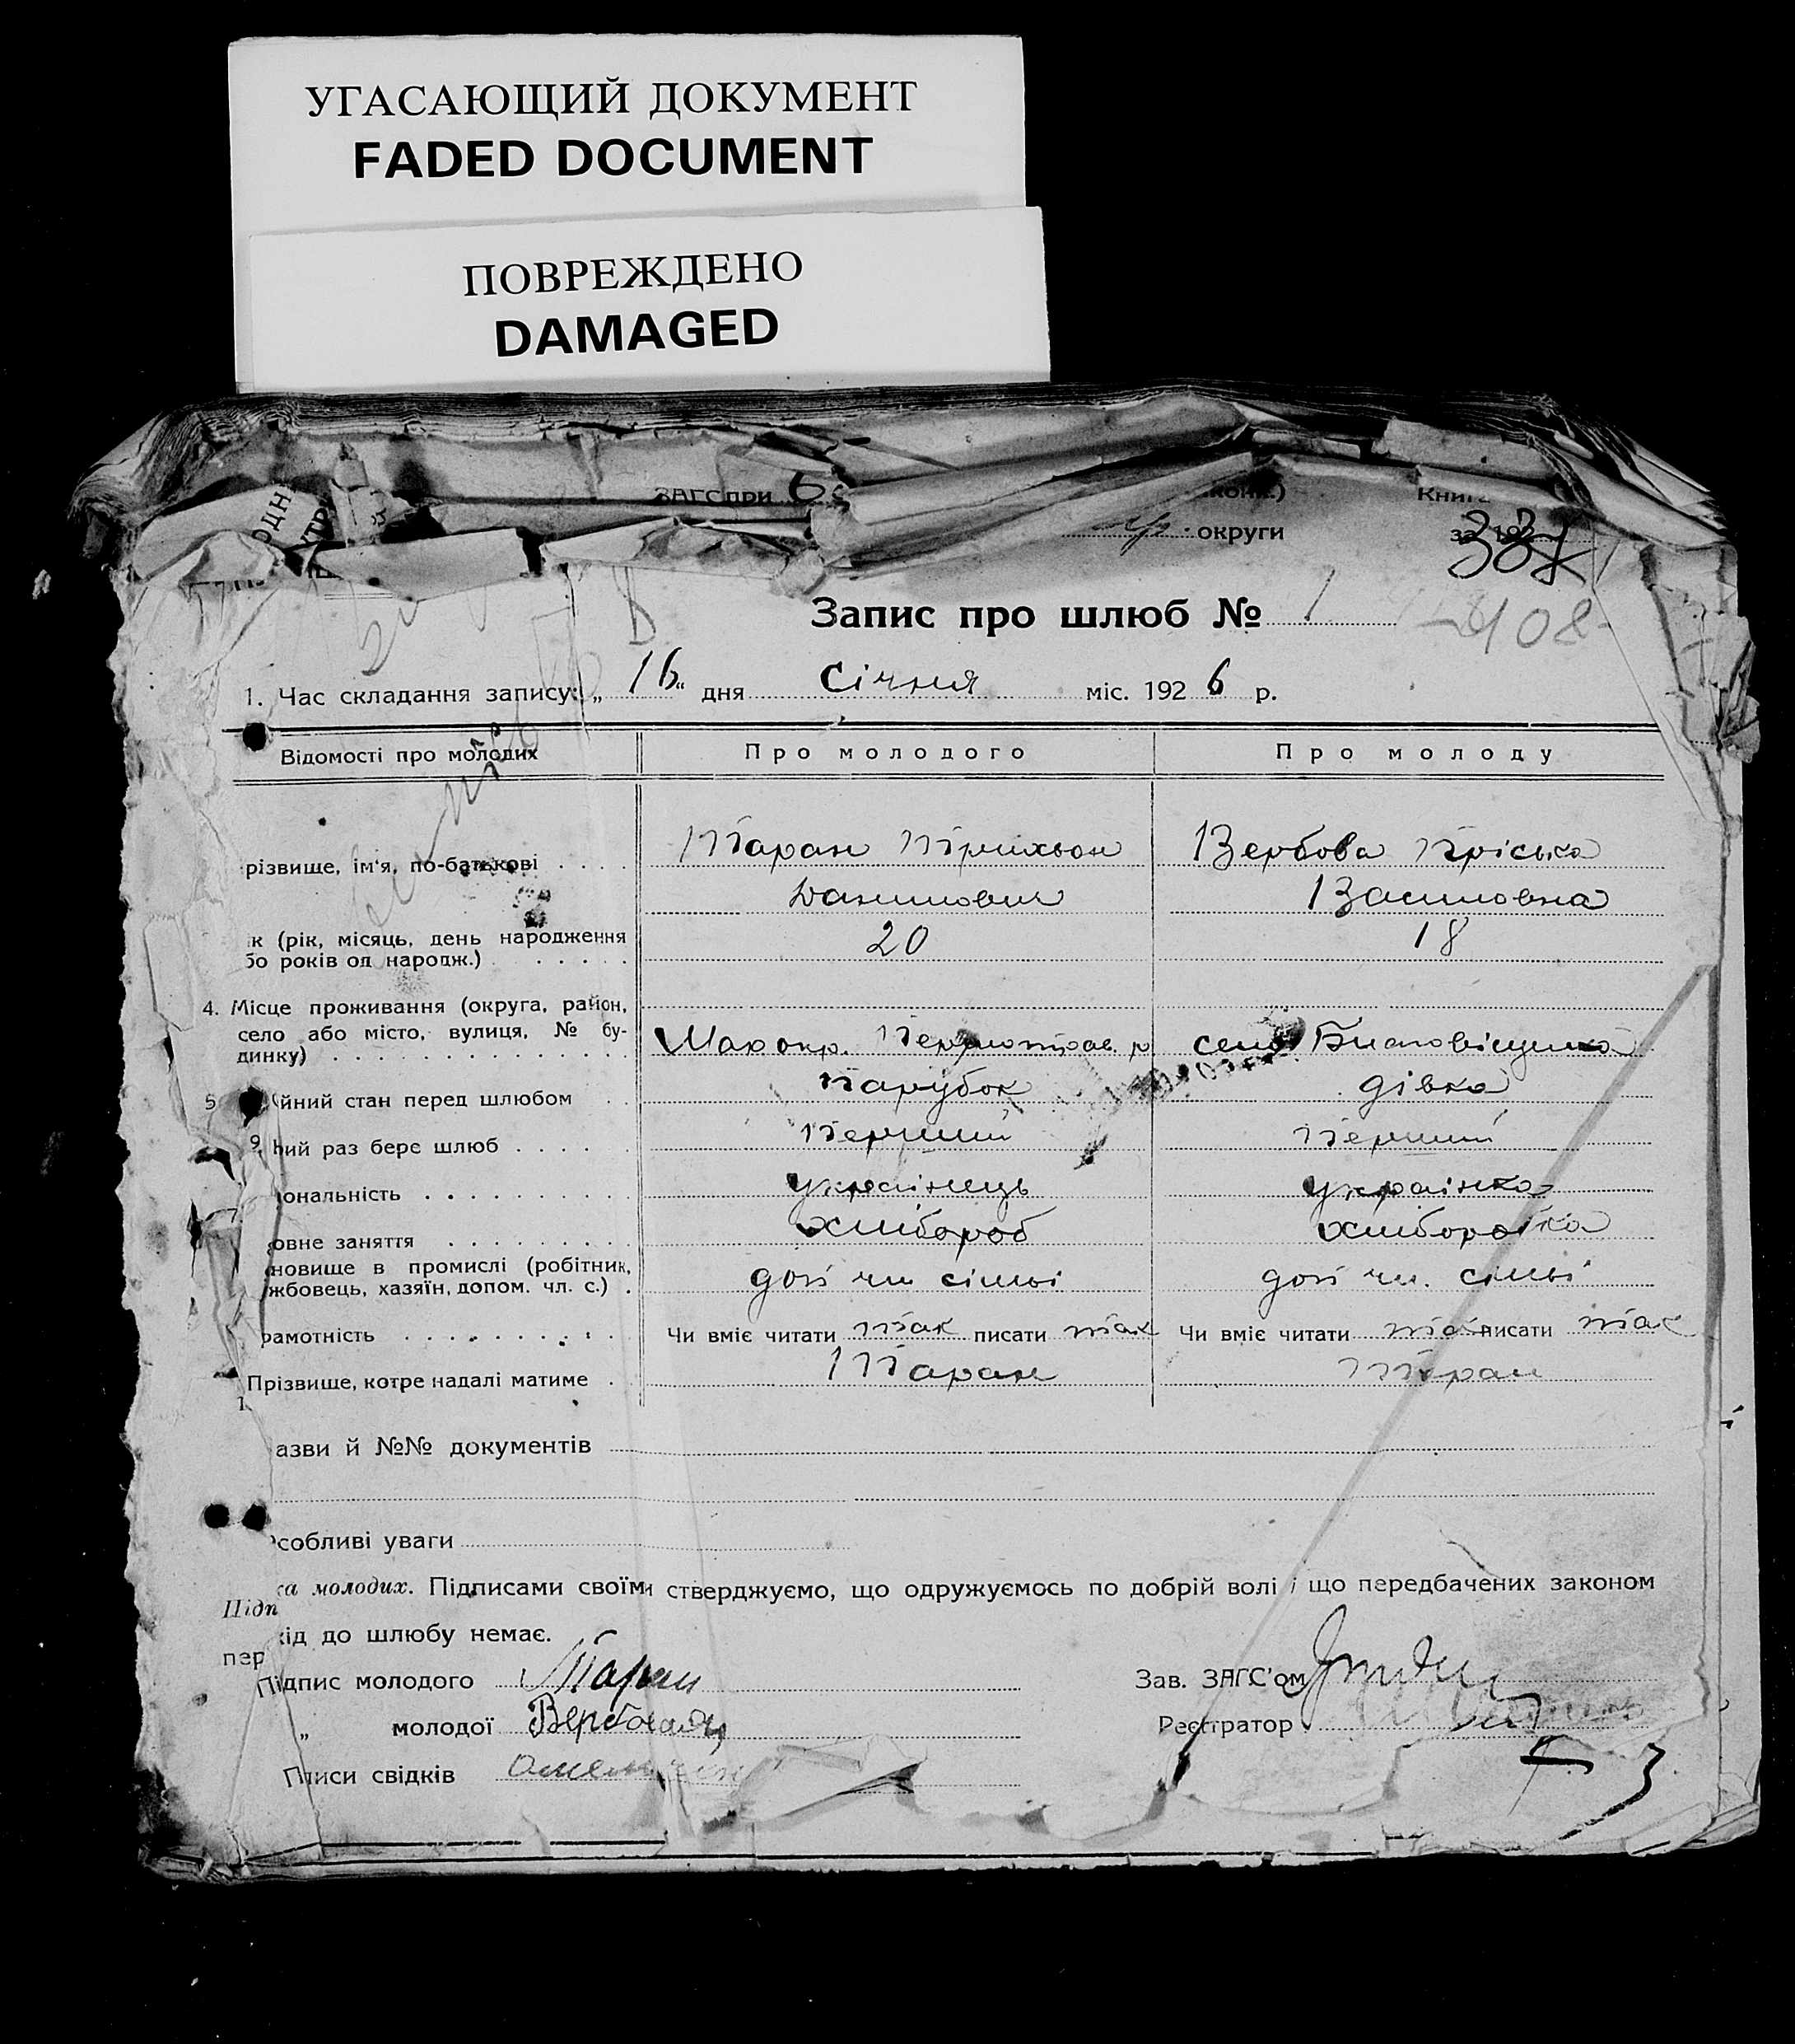 УГАСАЮЩИЙ ДОКУМЕНТ
FADED DOCUMENT
ПОВРЕЖДЕНО
DAMAGED
ЗАГС при
округи
337
Запис про шлюб № 1
408
1. Час складання запису: „16“ дня Січня міс. 1926 р.
Відомості про молодих Про молодого Про молоду
різвище, ім'я, по-батькові . . . . Таран Трихвон Вербова Пріська
Данилович Василовна
к (рік, місяць, день народження 20 18
бо років од народж.) . . . . .
4. Місце проживання (округа, район,
село або місто, вулиця, № бу-
динку) . . . . . Мар окр. р село
йний стан перед шлюбом . . Парубок дівка
ий раз бере шлюб . . . . . Перший Перший
ональність . . . . . Українець Українка
овне заняття . . . . . хлібороб хліборобка
новище в промислі (робітник,
жбовець, хазяїн, допом. чл. с.) . доп чл сімьї доп чл. сімьї
рамотність . . . . . Чи вміє читати так писати так Чи вміє читати так писати так
Прізвище, котре надалі матиме . Таран Таран
азви й №№ документів
собливі уваги
Підп ка молодих. Підписами своїми стверджуємо, що одружуємось по добрій волі і що передбачених законом
пер кід до шлюбу немає.
Підпис молодого Таран Зав. ЗАГС'ом
„ молодої Реєстратор
П писи свідків